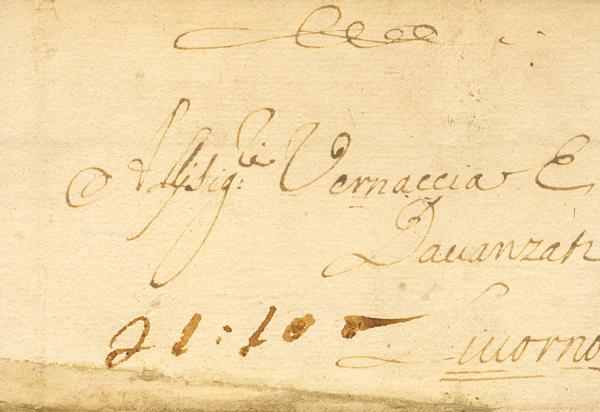 Alli Sig:ri Vernaccia E
Davanzati
Livorno